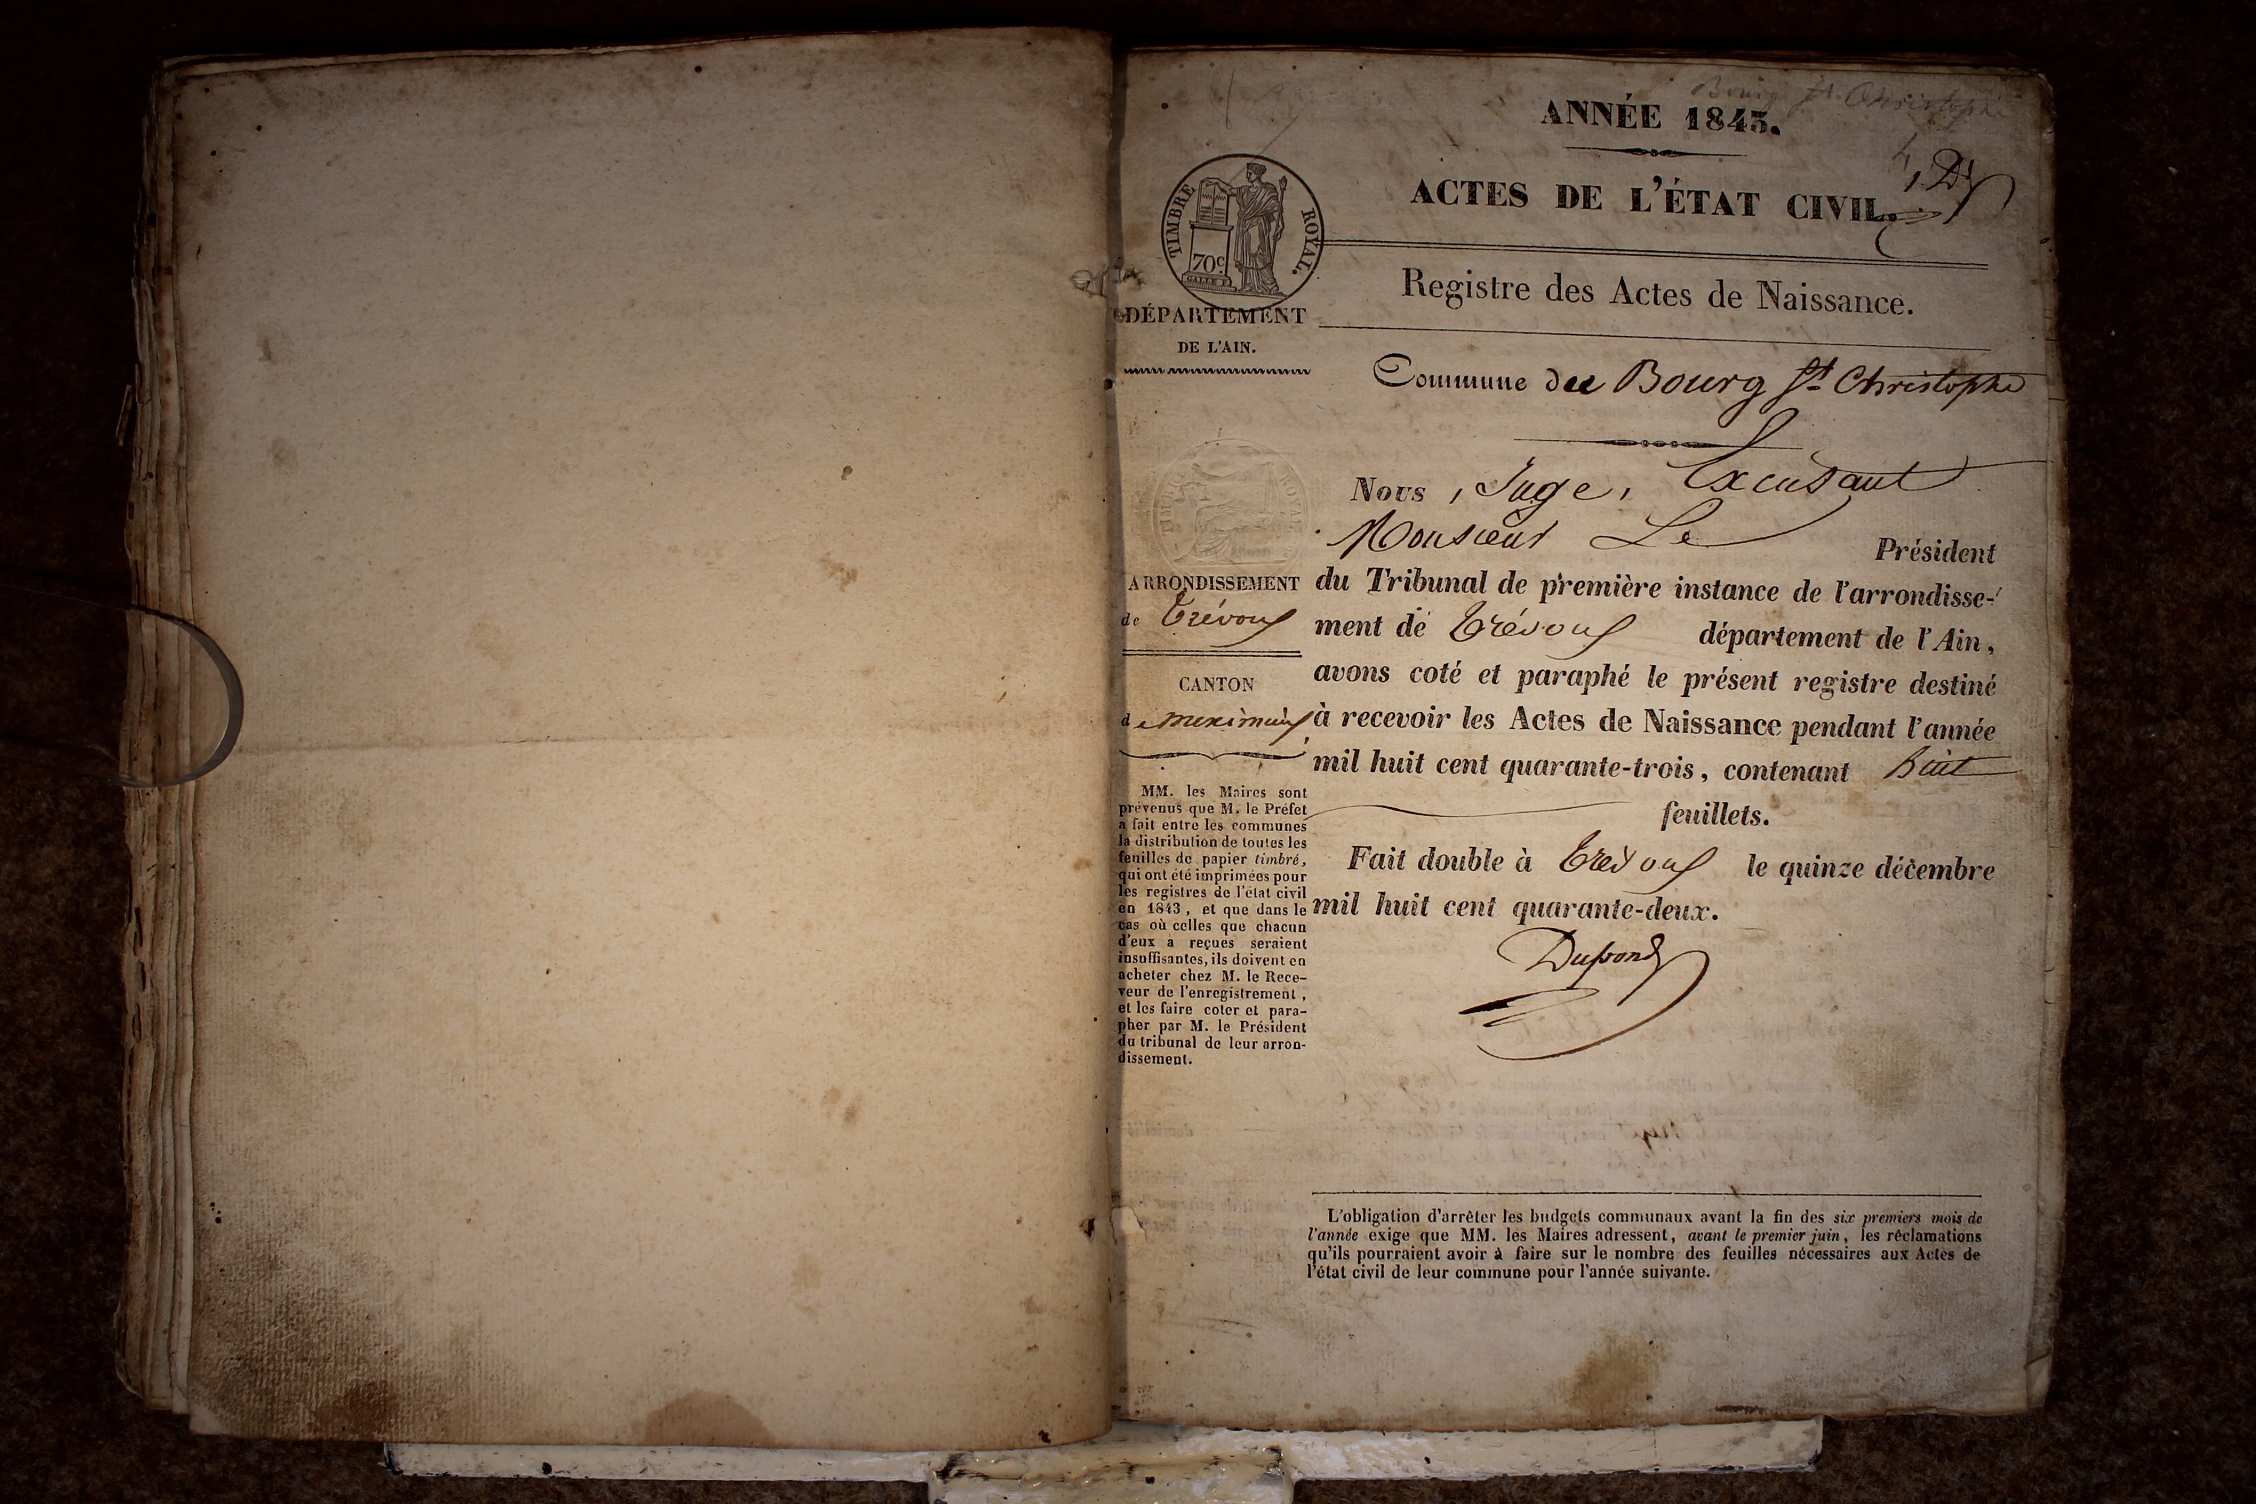 Bourg St Christophe
ANNÉE 1843.
ACTES DE L'ÉTAT CIVIL.
TIMBRE ROYAL.
70c
Registre des Actes de Naissance.
DÉPARTEMENT
DE L'AIN.
Commune du Bourg St Christophe
Nous, Juge, Excusant
Monsieur Le Président
du Tribunal de première instance de l'arrondisse-
ment de Trévoux département de l'Ain,
avons coté et paraphé le présent registre destiné
à recevoir les Actes de Naissance pendant l'année
mil huit cent quarante-trois, contenant huit
feuillets.
Fait double à Trévoux le quinze décembre
mil huit cent quarante-deux.
Dupond
ARRONDISSEMENT
de Trévoux
CANTON
de meximieux
MM. les Maires sont
prévenus que M. le Préfet
a fait entre les communes
la distribution de toutes les
feuilles de papier timbré,
qui ont été imprimées pour
les registres de l'état civil
en 1843, et que dans le
cas où celles que chacun
d'eux a reçues seraient
insuffisantes, ils doivent en
acheter chez M. le Rece-
veur de l'enregistrement,
et les faire coter et para-
pher par M. le Président
du tribunal de leur arron-
dissement.
L'obligation d'arrêter les budgets communaux avant la fin des six premiers mois de
l'année exige que MM. les Maires adressent, avant le premier juin, les réclamations
qu'ils pourraient avoir à faire sur le nombre des feuilles nécessaires aux Actes de
l'état civil de leur commune pour l'année suivante.